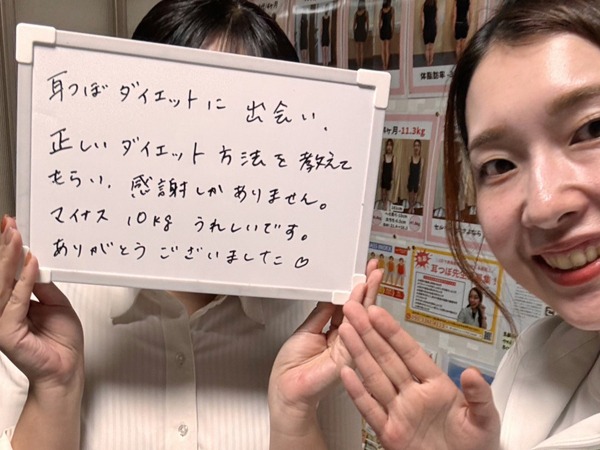 耳つぼダイエットに出会い、
正しいダイエット方法を教えて
もらい、感謝しかありません。
マイナス10kgうれしいです。
ありがとうございました♡
体脂肪率
ヶ月-11.3kg
耳つぼ先生募集!